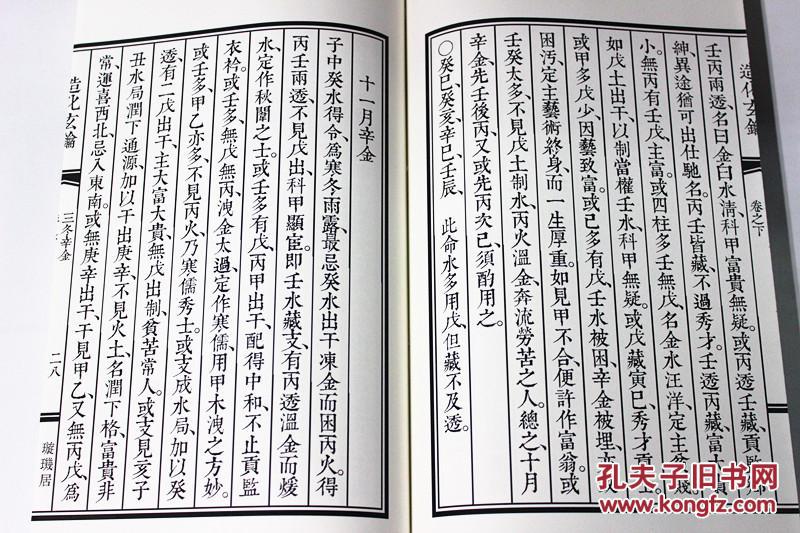 造化玄鑰
卷之下
壬丙兩透、名曰金白水清、科甲富貴無疑。或丙透壬藏、貢監
紳、異途猶可出仕馳名。丙壬皆藏、不過秀才。壬透丙藏、富
小。無丙有壬戊、主富。或四柱多壬無戊、名金水汪洋、定主貧賤。
如戊土出干、以制當權壬水、科甲無疑。或戊藏寅巳、秀才
或甲多戊少、因藝致富。或己多有戊、壬水被困、辛金被埋、
困污、定主藝術終身、而一生厚重。如見甲不合、便許作富翁。或
壬癸太多、不見戊土制水、丙火溫金、奔流勞苦之人。總之、十月
辛金、先壬後丙、又或先丙次己、須酌用之。
○癸巳癸亥辛巳壬辰 此命水多用戊、但藏不及透。
十一月辛金
子中癸水得令、爲寒冬雨露、最忌癸水出干凍金而困丙火。得
丙壬兩透、不見戊出、科甲顯宦。即壬水藏支、有丙透溫金而煖
水、定作秋闈之士。或壬多有戊、丙甲出干、配得中和、不止貢監
衣衿。或壬多、無戊無丙、洩金太過、定作寒儒、用甲木洩之方妙。
或壬多、甲乙亦多、不見丙火、乃寒儒秀士。或支成水局、加以癸
透、有二戊出干、主大富大貴、無戊出制、貧苦常人。或支見亥子
丑水局、潤下通源、加以干出庚辛、不見火土、名潤下格、富貴非
常、運喜西北、忌入東南。或無庚辛出干、干見甲乙、又無丙戊、爲
造化玄鑰
三冬辛金
二八
璇璣居
孔夫子旧书网
kongfz.com